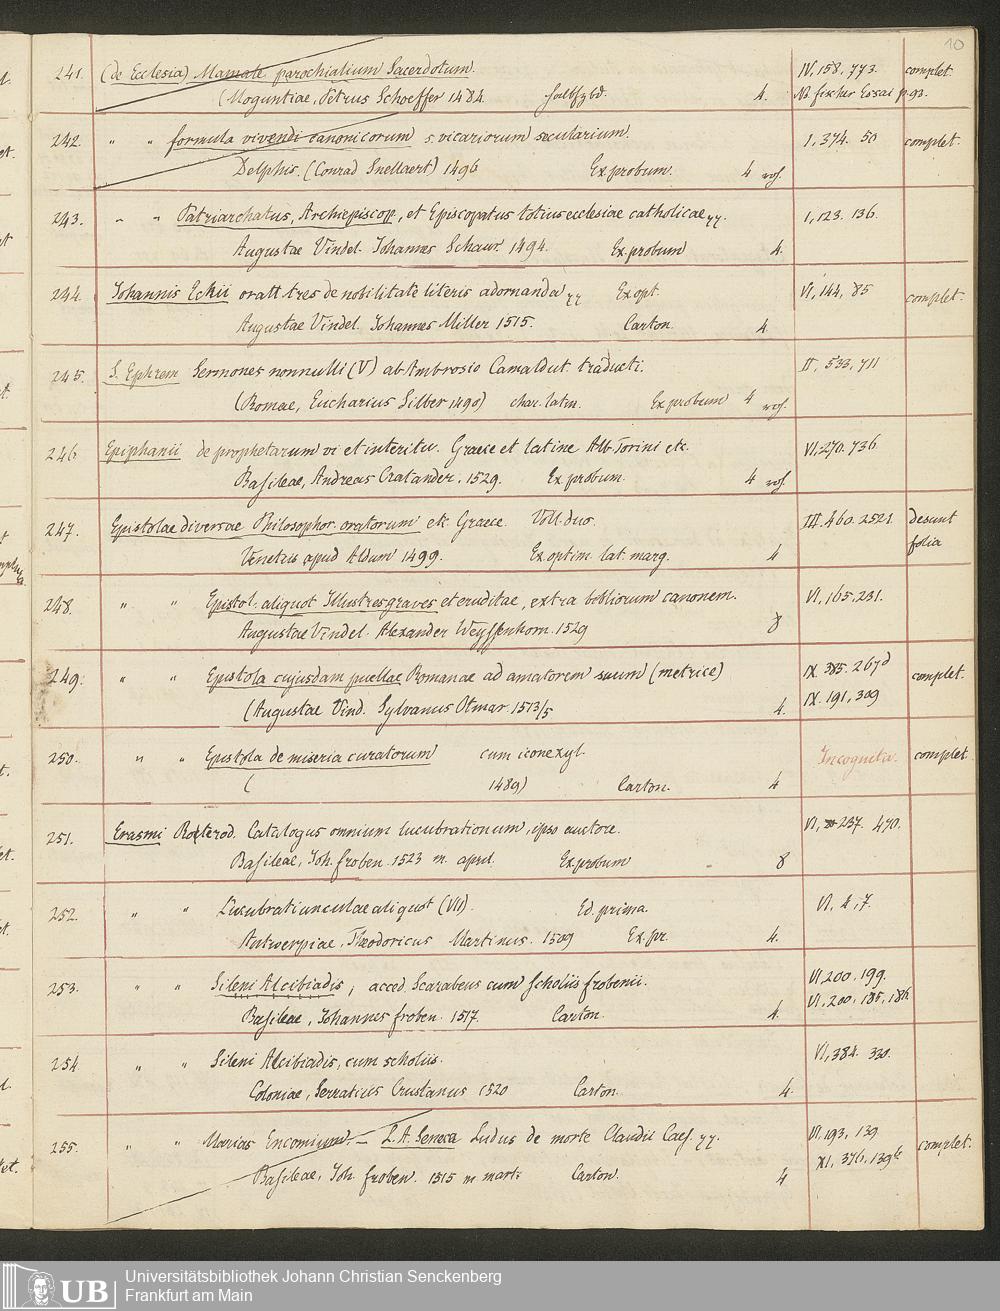 10
241. (de Ecclesia) Manuale parochialium Sacerdotum. IV, 158, 773. complet.
(Moguntiae, Petrus Schoeffer 1484. halbfzbd. 4. NB fischer Essai p. 93.
242. " " formula vivendi canonicorum s. vicariorum secularium. 1, 374. 50 complet.
Delphis. (Conrad Snellaert) 1496 Ex probum. 4
243. " " Patriarchatus, Archiepiscop., et Episcopatus totius ecclesiae catholicae 1, 123. 136.
Augustae Vindel. Johannes Schaur 1494. Ex. probum 4.
244. Johannis Eckii oratt tres de nobilitate literis adornanda Ex opt. VI, 144, 85 complet.
Augustae Vindel. Johannes Miller 1515. Carton. 4
245. S. Ephrem Sermones nonnulli (V) ab Ambrosio Camaldul. traducti. II, 533, 711
(Romae, Eucharius Silber 1490) char. latin. Ex probum 4
246 Epiphanii de prophetarum vi et interitu. Graece et latine Alb. Torini etc. VI, 270. 736.
Basileae, Andreas Cratander. 1529. Ex probum. 4
247. Epistolae diversae Philosophor. oratorum etc Graece. Voll. duo. III. 460. 2521 desunt
Venetiis apud Aldum 1499. Ex optim. lat. marg. 4 folia
248. " " Epistol. aliquot Illustres graves et eruditae, extra bibliorum canonem. VI, 165. 231.
Augustae Vindel. Alexander Weyssenhorn. 1529 8
249. " " Epistola cujusdam puellae Romanae ad amatorem suum (metrice) IX. 385. 267d complet.
(Augustae Vind. Sylvanus Otmar. 1513/5 4. IX. 191, 309
250. " " Epistola de miseria curatorum cum icone xyl. Incognita. complet.
( 1489) Carton. 4
251. Erasmi Roterod. Catalogus omnium lucubrationum, ipso auctore. VI, 237. 470.
Basileae, Joh. froben. 1523 m. april. Ex probum 8
252. " " Lucubratiunculae aliquot (VII). Ed. prima. VI, 4, 7.
Antwerpiae, Theodoricus Martinus. 1509 Ex. pr. 4.
253. " " Sileni Alcibiadis, acced. Scarabeus cum scholiis frobenii. VI, 200. 199.
Basileae, Johannes froben. 1517. Carton. 4. VI, 200, 185, 186.
254. " " Sileni Alcibiadis, cum scholiis. VI, 384. 330.
Coloniae, Serratius Crustanus 1520 Carton. 4.
255. " " Morias Encomium. — L. A. Seneca Ludus de morte Claudii Caes. VI, 193, 139 complet.
Basileae, Joh. froben. 1515 m. marti Carton. 4 XI, 376, 139b
UB
Universitätsbibliothek Johann Christian Senckenberg
Frankfurt am Main